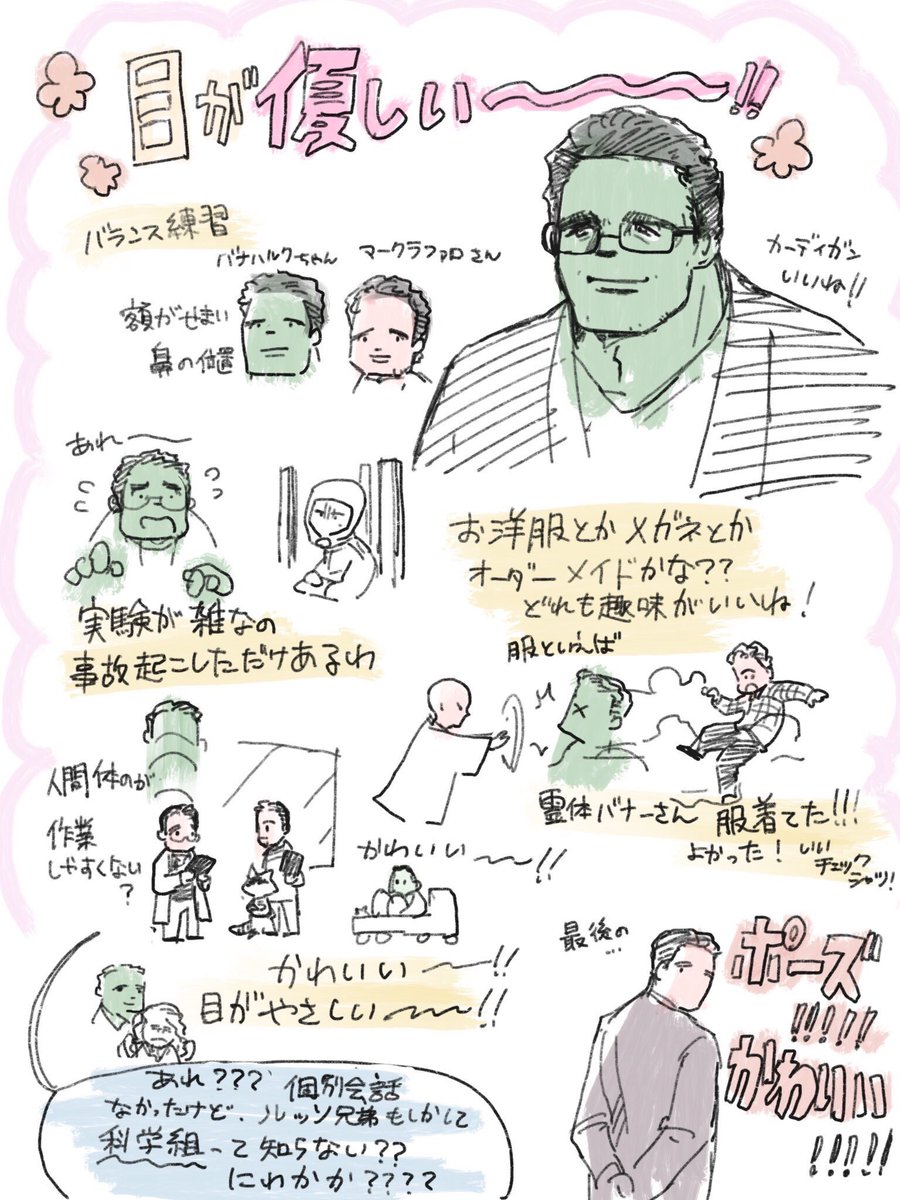 目が優しい〜〜〜!!
バランス練習
バナハルクちゃん
マークラファロさん
額がせまい
鼻の位置
カーディガン
いいね!!
あれ〜〜
実験が雑なの
事故起こしただけあるわ
お洋服とかメガネとか
オーダーメイドかな??
どれも趣味がいいね!
服といえば
霊体バナーさん 服着てた!!!
よかった! いい
チェック
シャツ!
人間体のが
作業
しやすくない
?
かわいい〜〜!!
かわいい〜〜!!
目がやさしい〜〜!!
あれ??? 個別会話
なかったけど、ルッソ兄弟もしかして
科学組って知らない??
にわかか????
最後の…
ポーズ
!!!!!
かわいい
!!!!!